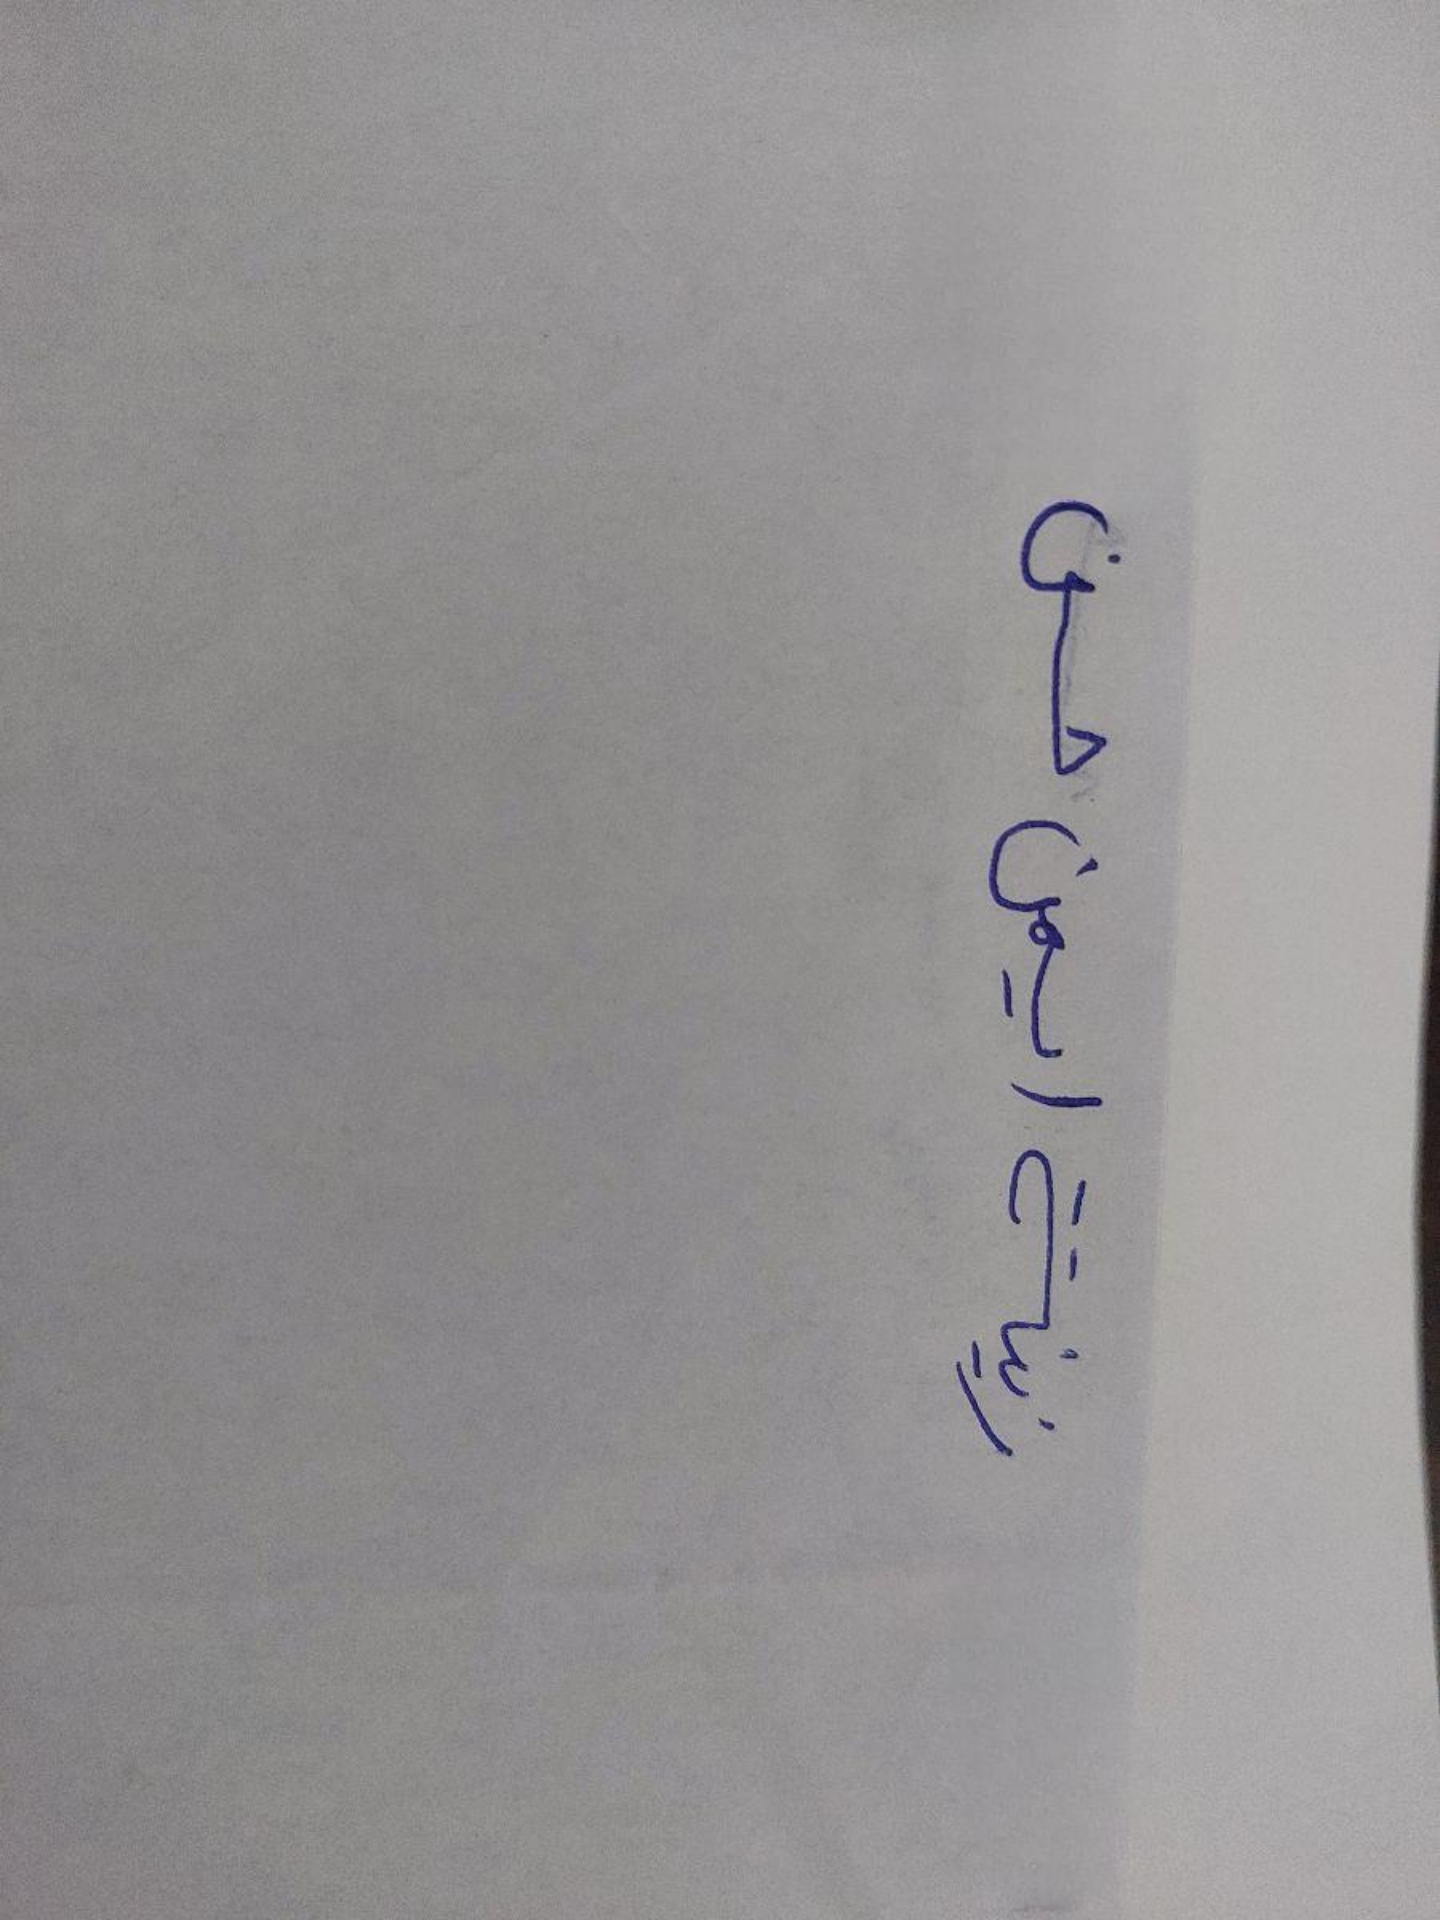 زينت ايمن حسن